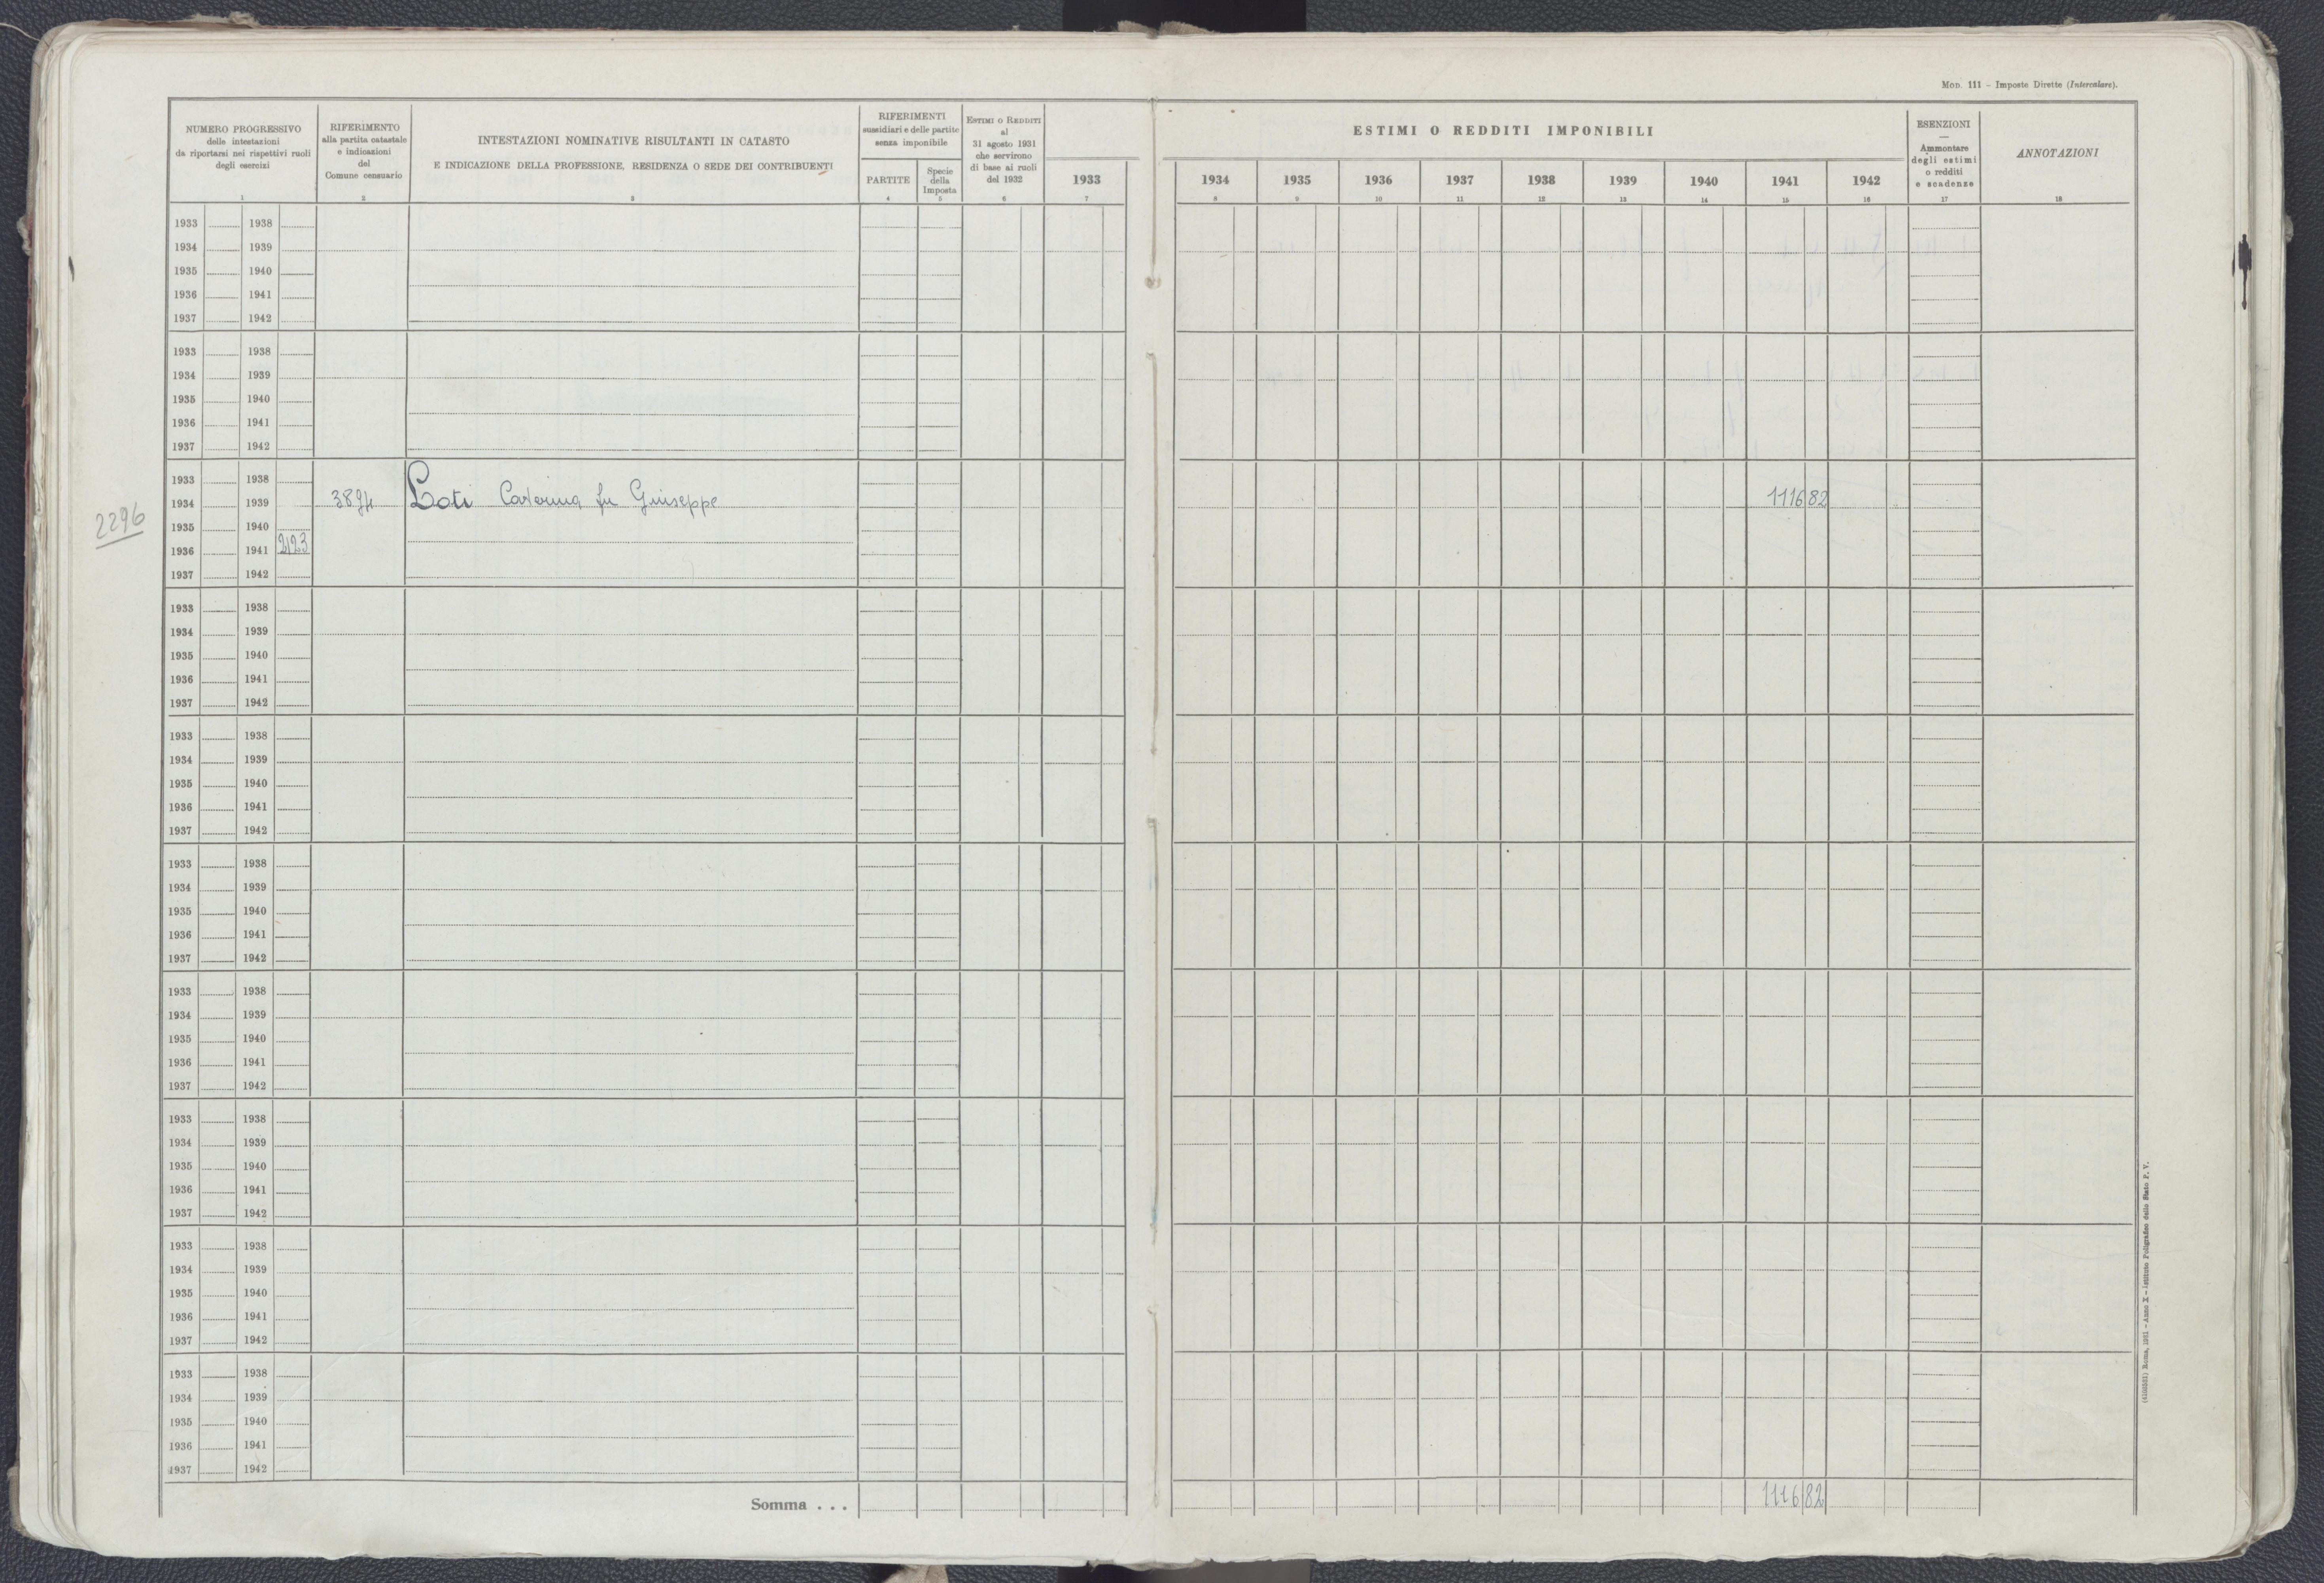 Mod. 111 – Imposte Dirette (Intercalare).
NUMERO PROGRESSIVO
delle intestazioni
da riportarsi nei rispettivi ruoli
degli esercizi
1
RIFERIMENTO
alla partita catastale
e indicazioni
del
Comune censuario
2
INTESTAZIONI NOMINATIVE RISULTANTI IN CATASTO
E INDICAZIONE DELLA PROFESSIONE, RESIDENZA O SEDE DEI CONTRIBUENTI
3
RIFERIMENTI
sussidiari e delle partite
senza imponibile
PARTITE
4
Specie
della
Imposta
5
ESTIMI O REDDITI
al
31 agosto 1931
che servirono
di base ai ruoli
del 1932
6
1933
7
ESTIMI O REDDITI IMPONIBILI
1934 1935 1936 1937 1938 1939 1940 1941 1942
8 9 10 11 12 13 14 15 16
ESENZIONI
—
Ammontare
degli estimi
o redditi
e scadenze
17
ANNOTAZIONI
18
1933 1938
1934 1939
1935 1940
1936 1941
1937 1942
1933 1938
1934 1939
1935 1940
1936 1941
1937 1942
1933 1938
1934 1939 3894 Loti Caterina fu Giuseppe 1116 82
2296
1935 1940
1936 1941 2123
1937 1942
1933 1938
1934 1939
1935 1940
1936 1941
1937 1942
1933 1938
1934 1939
1935 1940
1936 1941
1937 1942
1933 1938
1934 1939
1935 1940
1936 1941
1937 1942
1933 1938
1934 1939
1935 1940
1936 1941
1937 1942
1933 1938
1934 1939
1935 1940
1936 1941
1937 1942
1933 1938
1934 1939
1935 1940
1936 1941
1937 1942
1933 1938
1934 1939
1935 1940
1936 1941
1937 1942
Somma . . . 1116 82
Roma, 1931 – Anno X – Istituto Poligrafico dello Stato P. V.